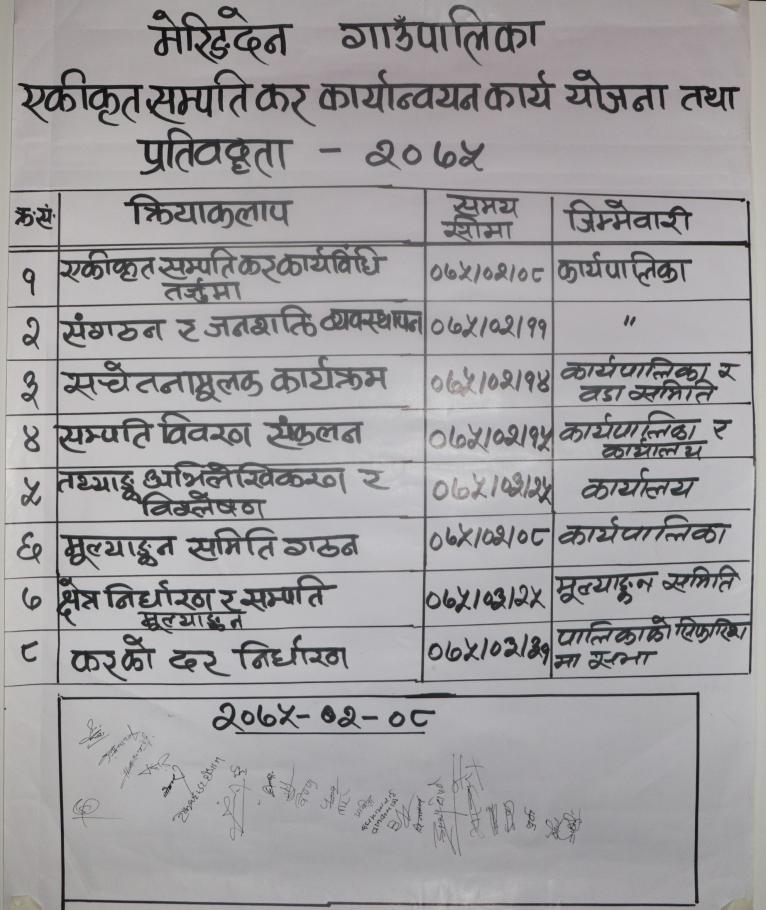 मेरिङदेन गाउँपालिका
एकीकृत सम्पति कर कार्यान्वयन कार्य योजना तथा
प्रतिवद्धता - २०७५
क्र.सं. क्रियाकलाप समय सीमा जिम्मेवारी
१ एकीकृत सम्पति कर कार्यविधि तर्जुमा ०७५/०२/०८ कार्यपालिका
२ संगठन र जनशक्ति व्यवस्थापन ०७५/०२/११ "
३ सचेतनामूलक कार्यक्रम ०७५/०२/१४ कार्यपालिका र वडा समिति
४ सम्पति विवरण संकलन ०७५/०२/१५ कार्यपालिका र कार्यालय
५ तथ्याङ्क अभिलेखिकरण र विश्लेषण ०७५/०२/२५ कार्यालय
६ मूल्याङ्कन समिति गठन ०७५/०२/०८ कार्यपालिका
७ क्षेत्र निर्धारण र सम्पति मूल्याङ्कन ०७५/०३/२५ मूल्याङ्कन समिति
८ करको दर निर्धारण ०७५/०३/३१ पालिकाको सिफारिस मा सभा
२०७५-०२-०८